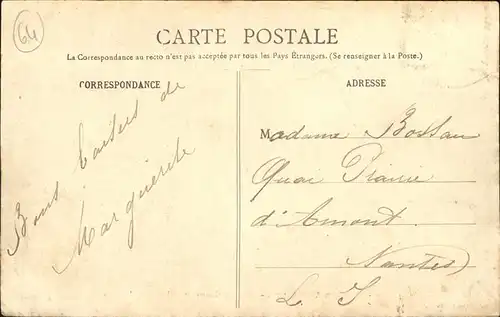 64
CARTE POSTALE
La Correspondance au recto n'est pas acceptée par tous les Pays Étrangers. (Se renseigner à la Poste.)
CORRESPONDANCE
Bons baisers de
Marguerite
ADRESSE
Madame Bossau
Quai Prairie
d'Amont
Nantes
L. I.